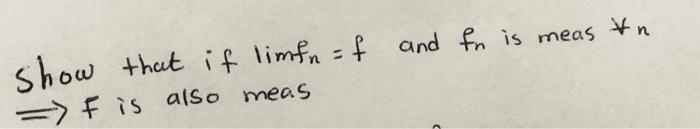 Show that if limfn = f and fn is meas ∀n
⟹ f is also meas